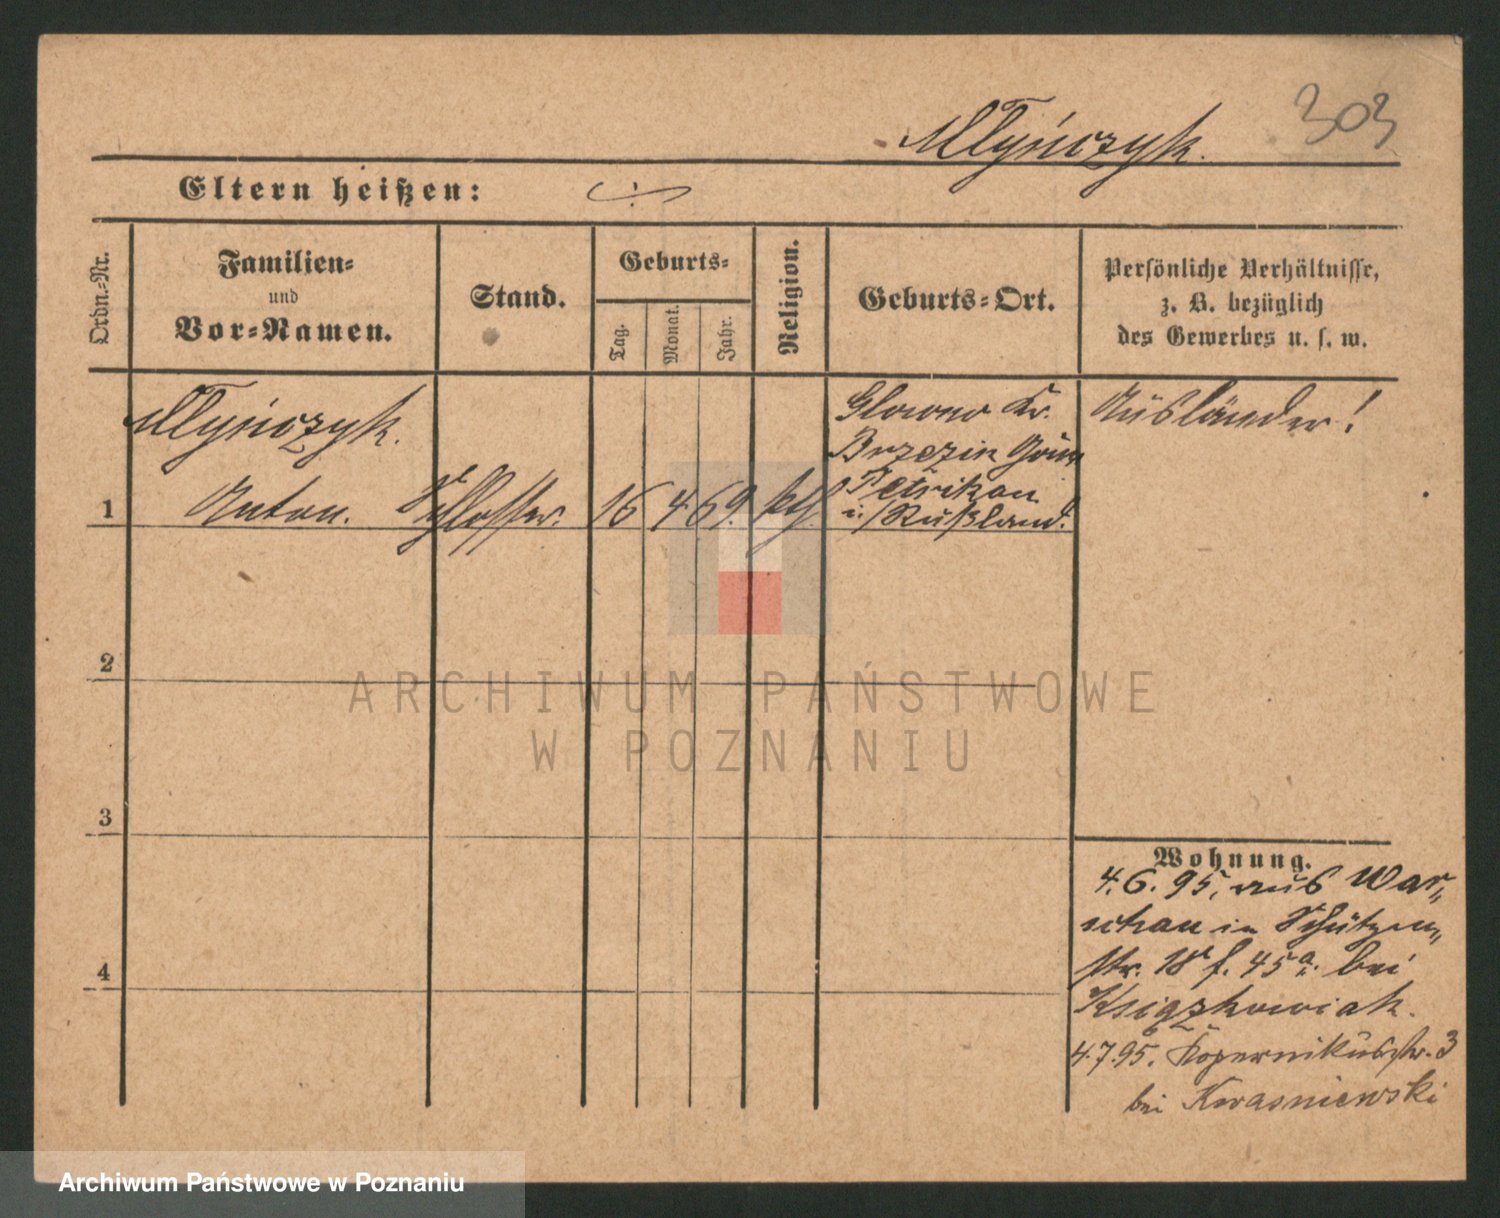 303
Młyńczyk.
Eltern heißen:
Ordn.-Nr.
Familien-
und
Vor-Namen.
Stand.
Geburts-
Tag.
Monat.
Jahr.
Religion.
Geburts-Ort.
Persönliche Verhältnisse,
z. B. bezüglich
des Gewerbes u. s. w.
1
Młyńczyk.
Anton.
Schlosser.
16
4
69.
kth.
Glowno Kr.
Brzezin Gouv
Petrikau
i./Rußland.
Ausländer!
2
3
4
Wohnung.
4.6.95. aus War-
schau in Schützen-
str. 18 45a. bei
Książkowiak.
4.7.95. Kopernikusstr. 3
bei Kwasniewski
ARCHIWUM PAŃSTWOWE
W POZNANIU
Archiwum Państwowe w Poznaniu